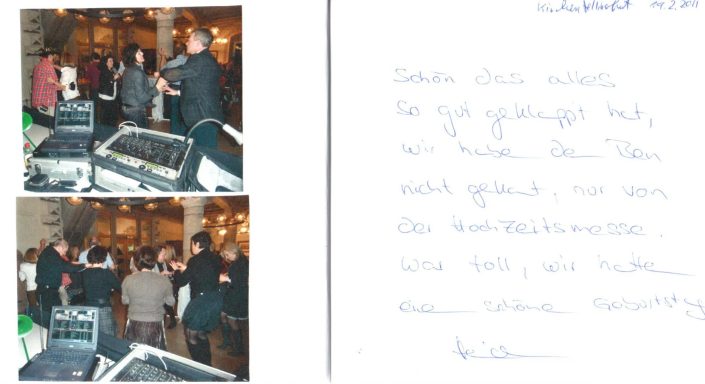 Kirchentellinsfurt 19.2.2011
Schön das alles
so gut geklappt hat,
wir habe de Ben
nicht gekant, nur von
der Hochzeitsmesse.
War toll, wir hatte
eine schöne Geburtstag
feier